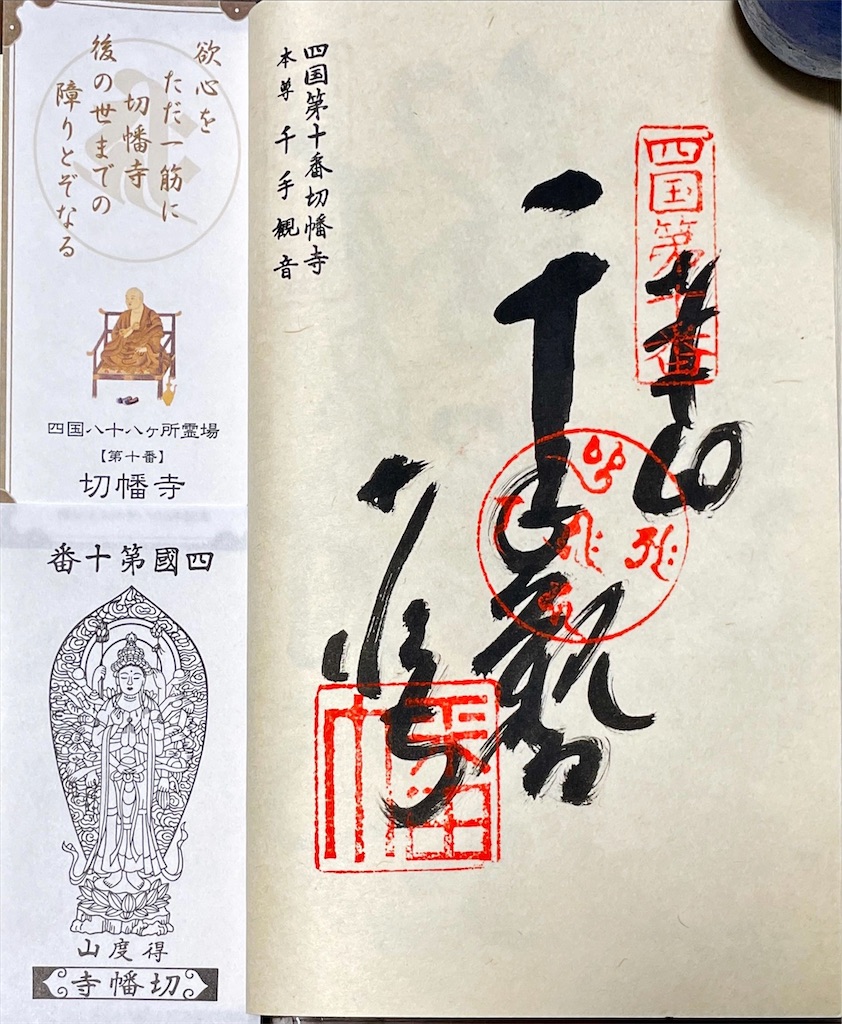 欲心を
ただ一筋に
切幡寺
後の世までの
障りとぞなる
四国八十八ヶ所霊場
【第十番】
切幡寺
四國第十番
得度山
切幡寺
四国第十番切幡寺
本尊 千手観音
四国第十番